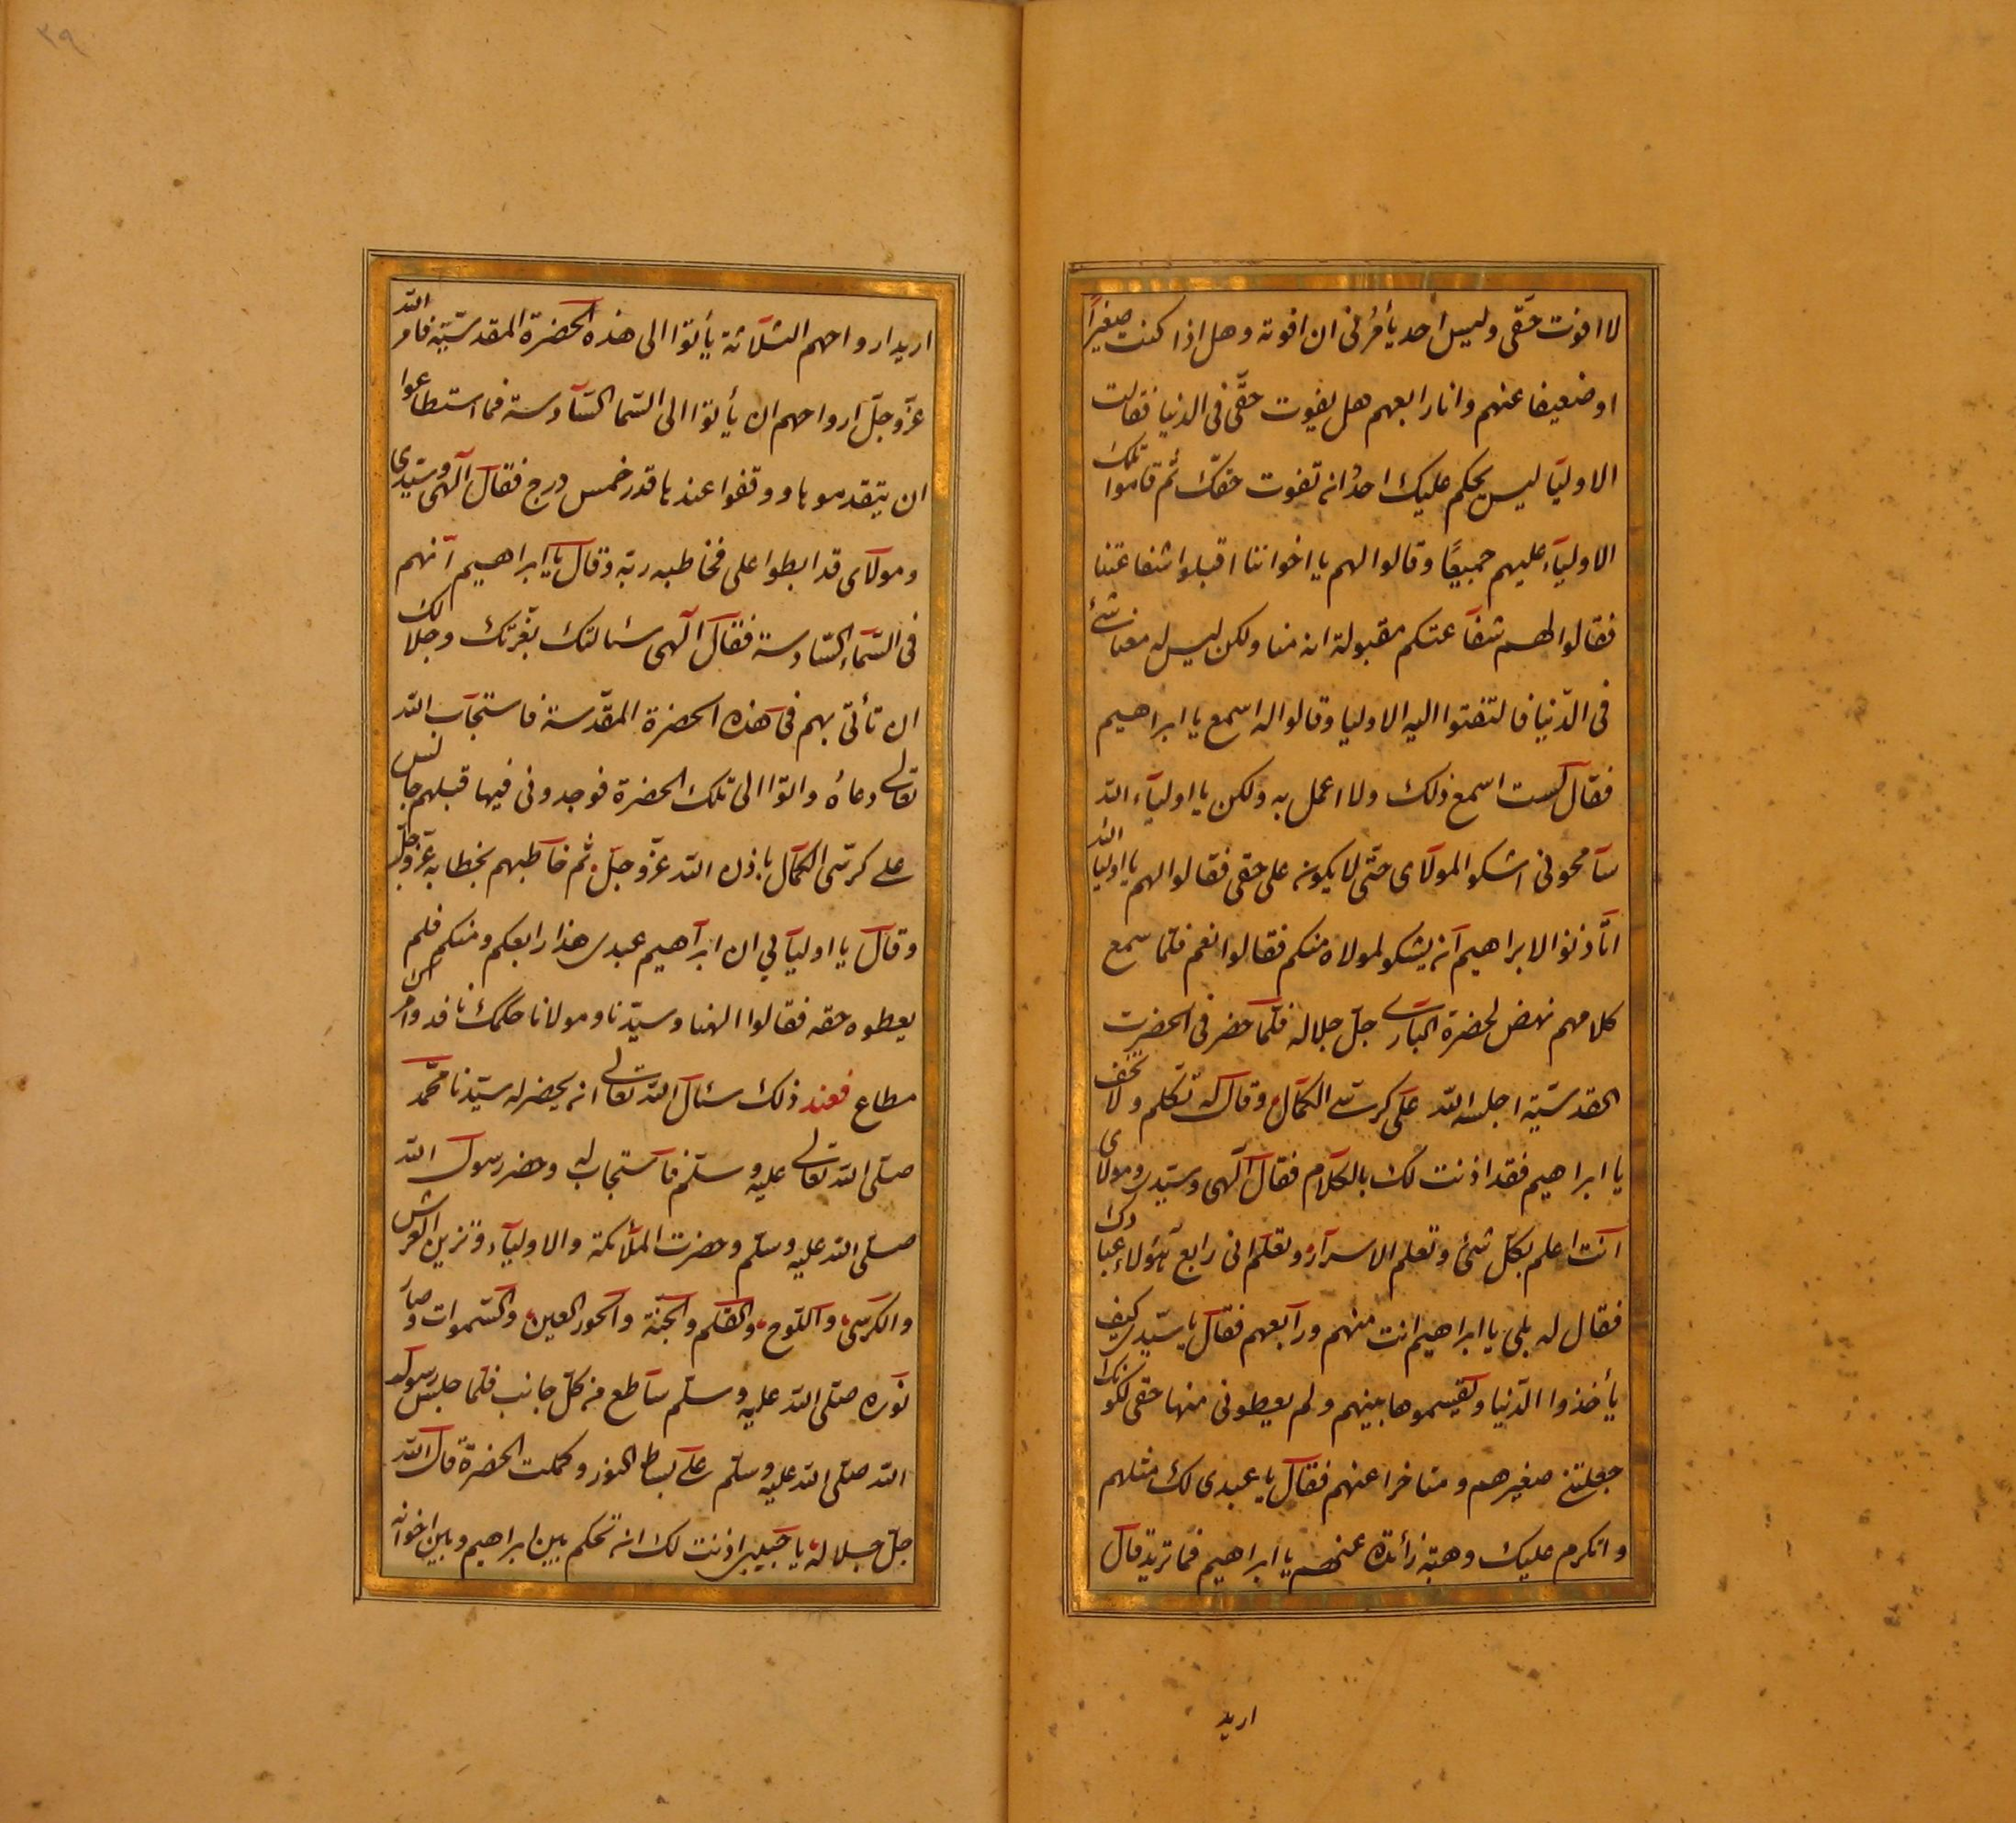 لا افوت حقّى وليس احد يأمرنى ان افوته وهل اذا كنت صغيراً
او ضعيفا عنهم وانا رابعهم هل يفوت حقّى فى الدنيا فقالت
الاوليآ ليس يحكم عليك احدٌ انه تفوت حقّك ثم قاموا تلك
الاوليآء عليهم جميعًا وقالوا لهم يا اخواننا اقبلوا شفاعتنا
فقالوا لهم شفآعتكم مقبولة انه منا ولكن ليس له معنا شئ
فى الدّنيا فالتفتوا اليه الاوليا وقالوا له اسمع يا ابراهيم
فقال لست اسمع ذلك ولا اعمل به ولكن يا اوليآء الله
سآمحونى اشكوا لمولآى حتّى لا يكون على حقى فقالوا لهم يا اوليا الله
اتّأذنوا لابراهيم انه يشكو لمولاه منكم فقالوا نعم فلمّا سمع
كلامهم نهض لحضرة البارى جلّ جلاله فلمّا حضر فى الحضرت
القدسيّة اجلسه الله على كرسىّ الكمال وقال له تكلم ولا تخف
يا ابراهيم فقد اذنت لك بالكلام فقال آلهى وسيّدى ومولاى
آنت اعلم بكلّ شئ وتعلم الاسرآر وتعلم انى رابع هؤلاء عبادك
فقال له بلى يا ابراهيم انت منهم ورآبعهم فقال يا سيّدى كيف
يأخذوا الدّنيا ويقسموها بينهم ولم يعطونى منها حقى لكونك
جعلتنى صغيرهم ومتاخرا عنهم فقال يا عبدى لك مثلهم
واتكرم عليك وهبة زائدة عنهم يا ابراهيم فما تريد قال
اريد
٣٩
اريد ارواحهم الثلاثة يأتوا الى هذه الحضرة المقدسيّة فامر الله
عزّ وجلّ ارواحهم ان يأتوا الى السّما السّآدسة فما استطاعوا
ان يتقدموها ووقفوا عندها قدر خمس درج فقال آلهى وسيّدى
ومولآى قد ابطوا على فخاطبه ربّه وقال يا ابراهيم آنهم
فى السّمآء السّادسة فقال آلهى سئالتك بعزّتك وجلالك
ان تأتى بهم فى هذه الحضرة المقدّسة فاستجآب الله
تعالى دعاه واتوا الى تلك الحضرة فوجدونى فيها قبلهم جالس
على كرسّى الكمآل باذن الله عزّ وجلّ ثم خآطبهم بخطابه عزّ وجلّ
وقال يا اوليآئي ان ابرآهيم عبدى هذا رابعكم ومنكم فلم
يعطوه حقه فقالوا الهنا وسيّدنا ومولانا حكمك نافد وامرك
مطاع فعند ذلك سئال الله تعالى انه يحضر له سيّدنا محمّد
صلّى الله تعالى عليه وسلّم فآستجاب له وحضر رسول الله
صلّى الله عليه وسلّم وحضرت الملآئكة والاوليآء وتزين العرش
والكرسى وآللّوح والقلم والجنّة وآلحور العين والسّموات وصآر
نوره صلّى الله عليه وسلّم سآطع من كلّ جانب فلما جلس رسول
الله صلّى الله عليه وسلّم على بساط النور وكملت الحضرة قال الله
جلّ جلاله يا حبيبى اذنت لك انه تحكم بين ابراهيم وبين اخوانه